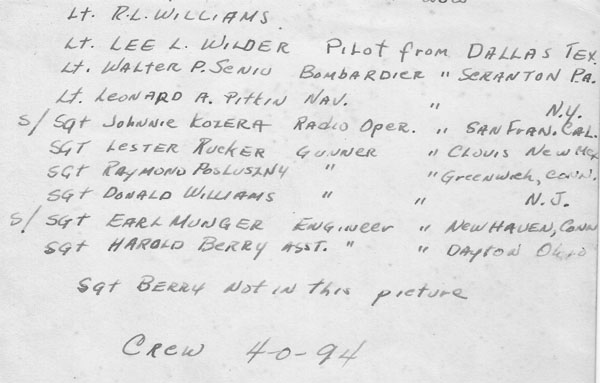 Lt. R.L. WILLIAMS.
Lt. LEE L. WILDER Pilot from DALLAS TEX.
Lt. WALTER P. SENIU BOMBARDIER " SCRANTON PA.
Lt. LEONARD A. PITKIN NAV. " N.Y.
S/Sgt JOHNNIE KOZERA RADIO OPER. " SAN FRAN. CAL.
SGT LESTER RUCKER GUNNER " CLOVIS NEW MEX
SGt RAYMOND POSLUSZNY " " GREENWICH, CONN.
SGt DONALD WILLIAMS " " N.J.
S/SGt EARL MUNGER ENGINEER " NEW HAVEN, CONN
SGt HAROLD BERRY ASST. " " DAYTON OHIO
SGt BERRY Not in this picture
CREW 40-94